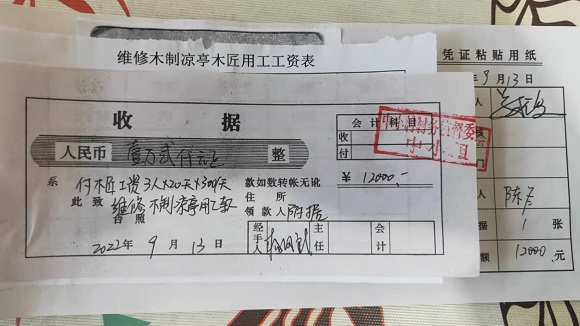 维修木制凉亭木匠用工工资表
凭证粘贴用纸
9月13日
收据
会计科目
收
付
人民币 壹万贰仟元正 整
¥ 12000,-
系 付木匠工资3人×20天×300/天
款如数转帐无讹
此致 维修木制凉亭用工款
住所
台照
领款人 附据
2022年9月13日
经手人
主任
会计
人
陈
据 1 张
12000 元